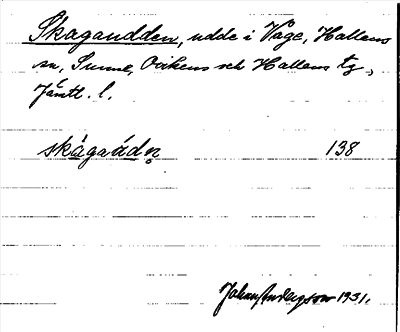 Skagaudden, udde i Våge, Hallens
sn, Sunne, Ovikens och Hallens tg,
Jämtl. l.
skågaúdn̥ 138
Johan Andersson 1931.